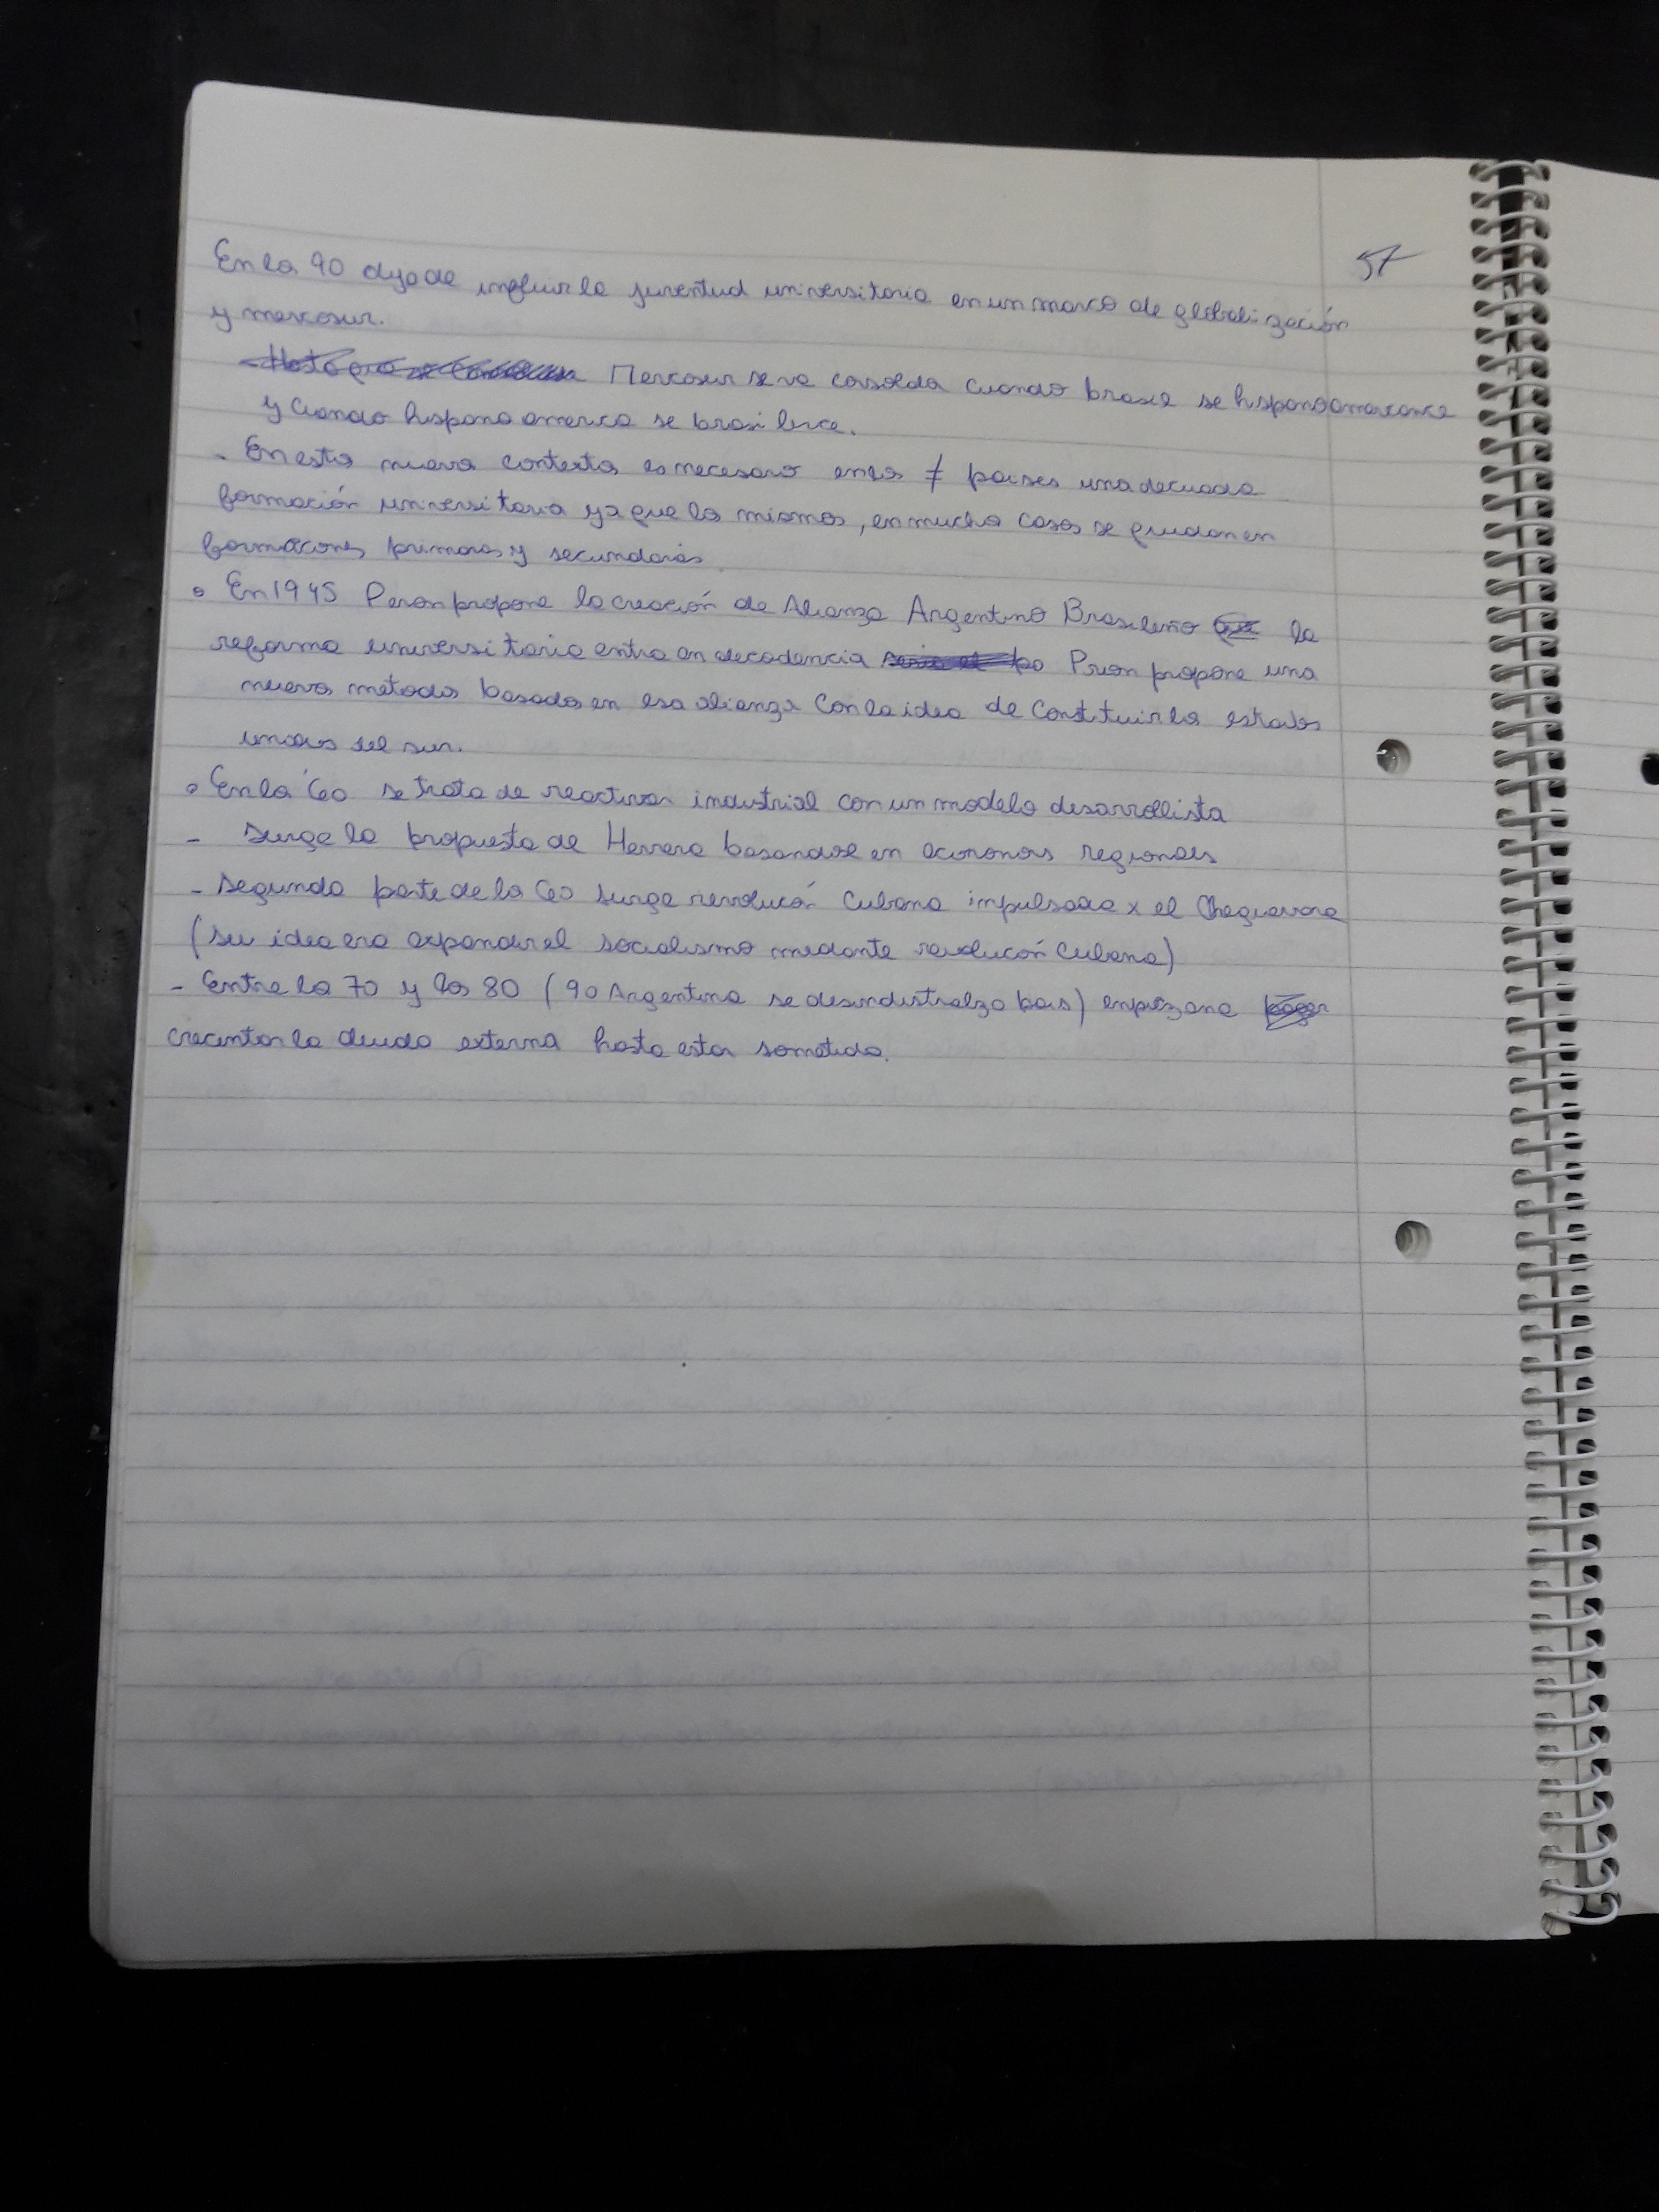 57
En los 90 deja de influir la juventud universitaria en un marco de globalización
y mercosur.
Mercosur se va consolda cuando brasil se hispanoamericanice
y cuando hispano america se brasilerice.
- En estos nuevos contextos es necesario en los ≠ paises una decuada
formación universitaria ya que los mismos, en muchos casos se quedan en
formaciones primarias y secundarias
• En 1945 Peron propone la creación de Alianza Argentino Brasileño la
reforma universitaria entra en decadencia Peron propone una
nuevos metodos basados en esa alianza con la idea de constituir los estados
unidos del sur.
• En los 60 se trata de reactivar industrial con un modelo desarrollista
- Surge la propuesta de Herrera basandose en economias regionales
- Segunda parte de los 60 surge revolución Cubana impulsada x el Cheguevara
(su idea era expandir el socialismo mediante revolución Cubana)
- Entre los 70 y los 80 (90 Argentina se desindustralizo pais) empiezan a
crecentar la deuda externa hasta estar sometida.